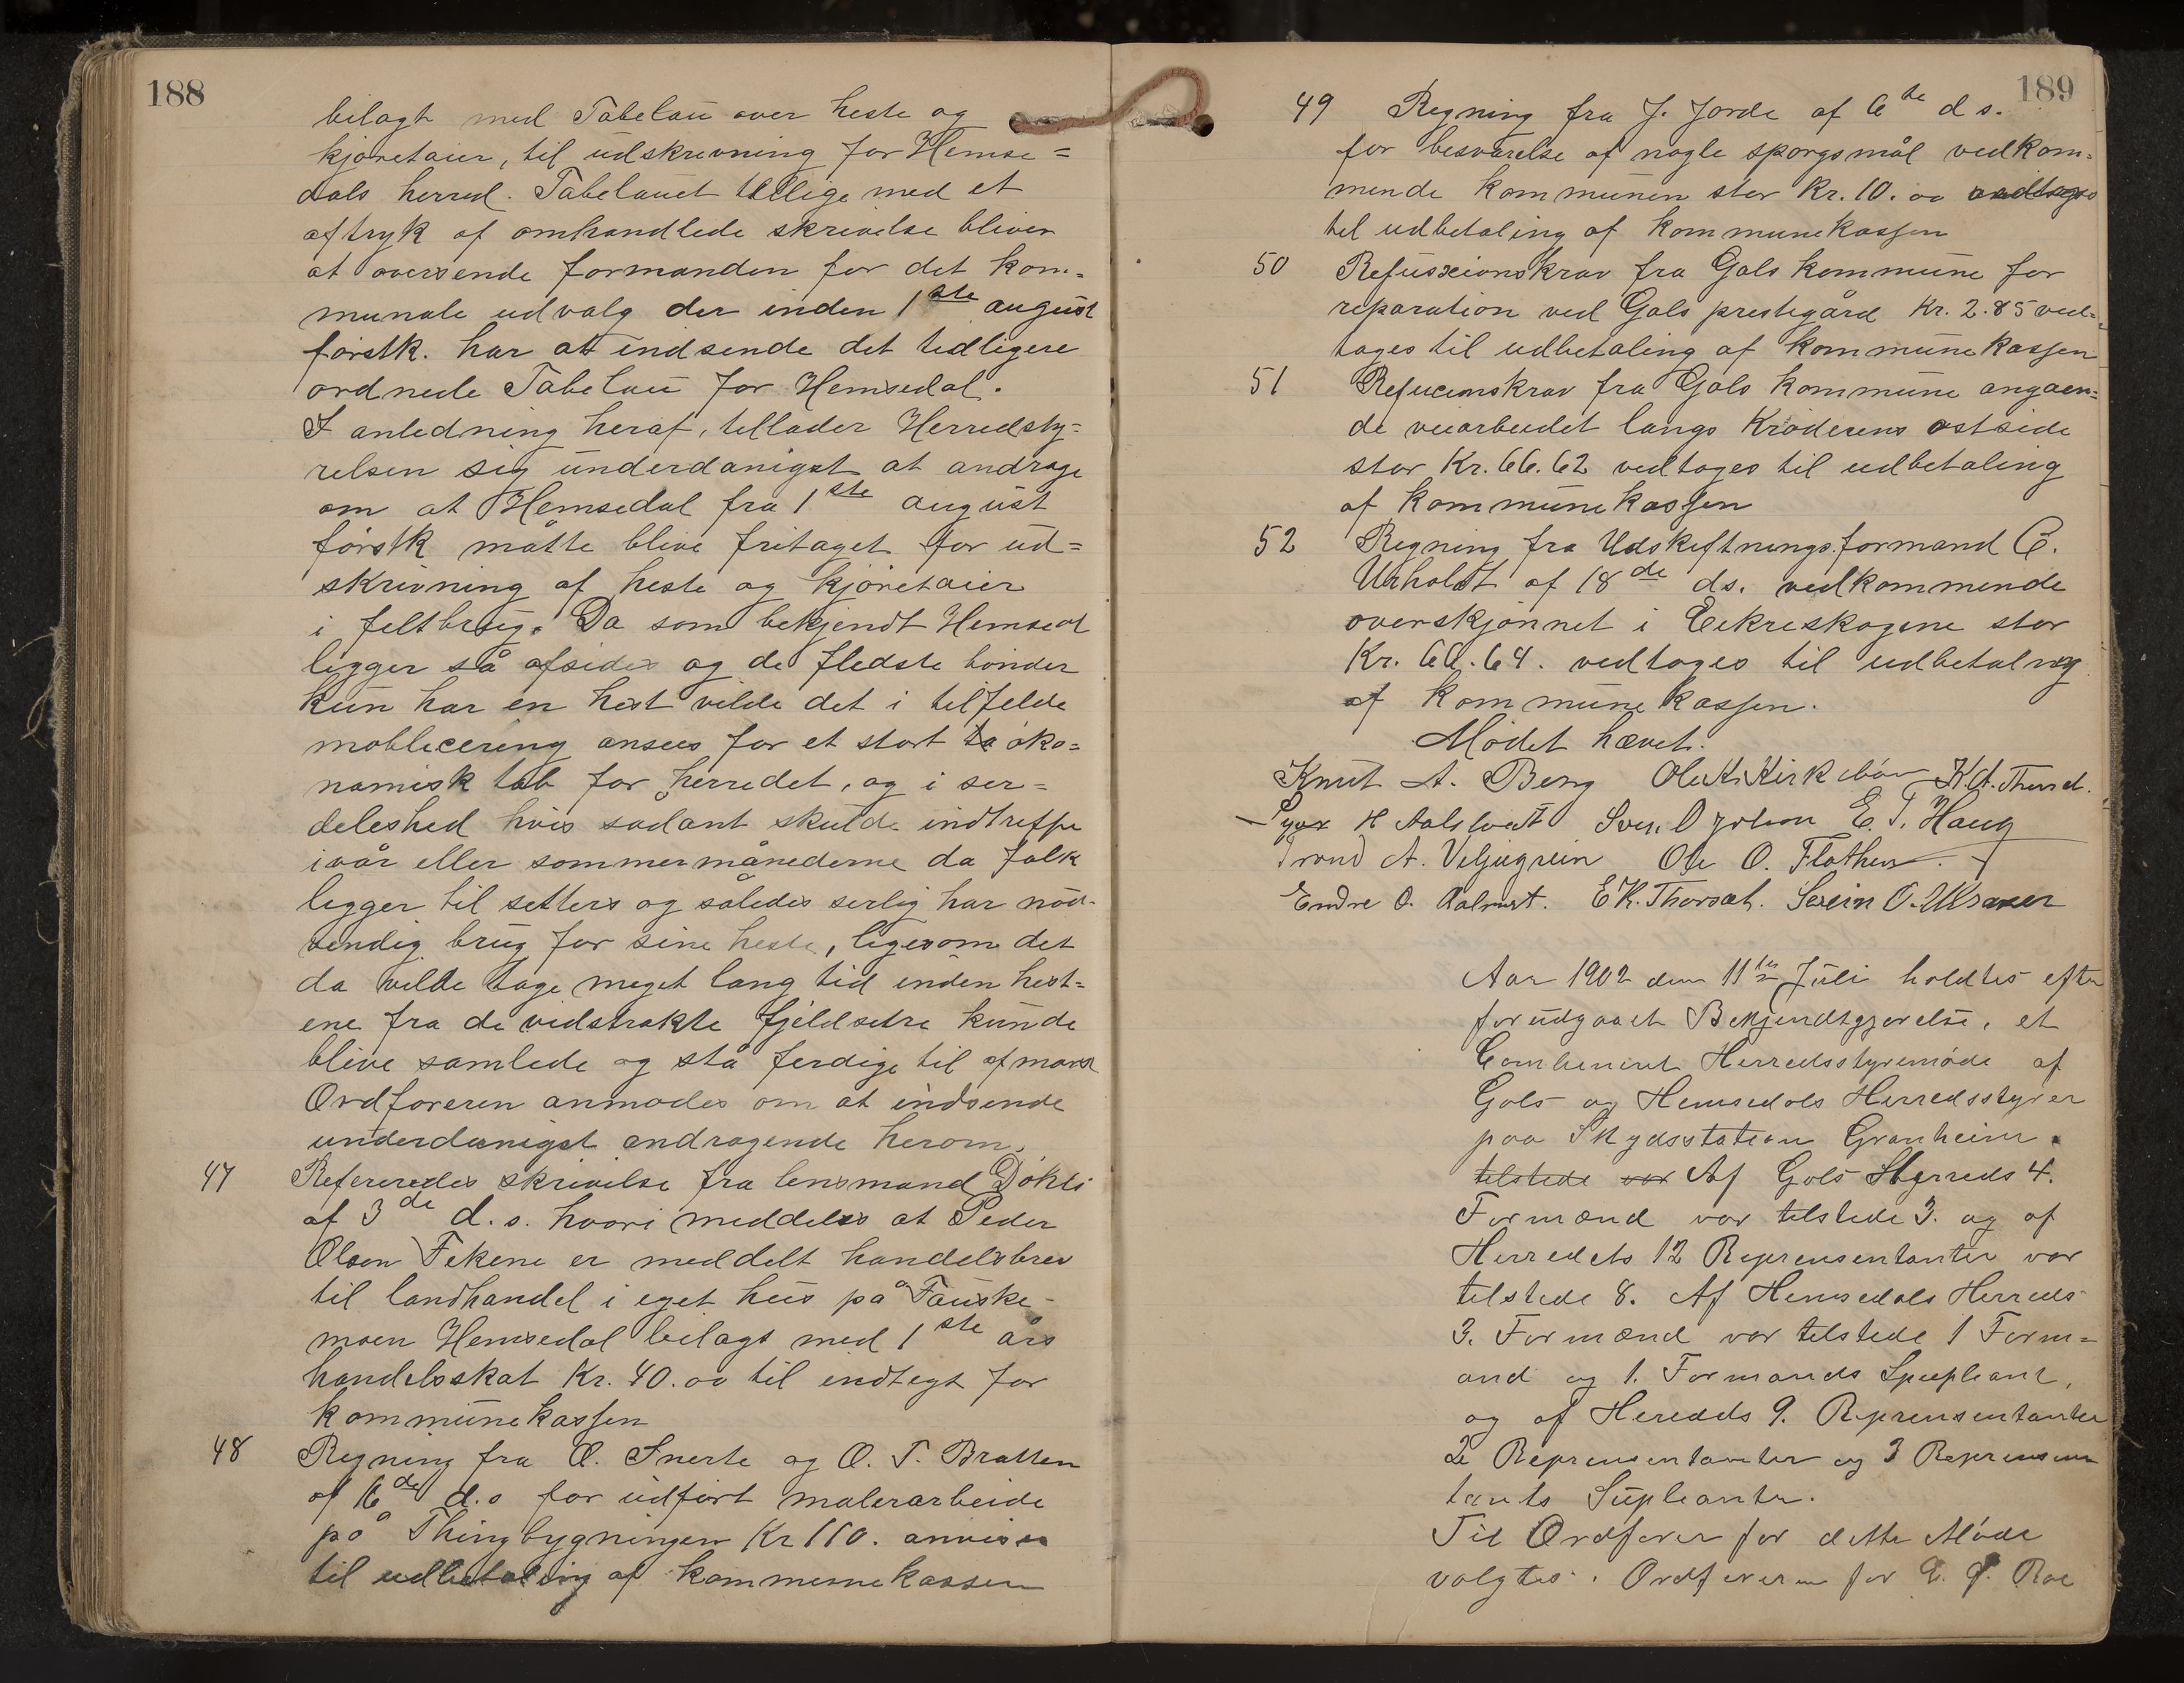 188
bilagt med Tabelau over heste og
kjøretøier, til udskrevning for Hemse=
dals herred. Tabelauet tillige med et
aftryk af omhandlede skrivelse bliver
at oversende formanden for det kom=
munale udvalg der inden 1ste august
førstk. har at indsende det tidligere
ordnede Tabelau for Hemsedal.
I anledning heraf, tillader Herredsty=
relsen sig underdanigst at andrage
om at Hemsedal fra 1ste august
førstk måtte blive fritaget for ud=
skrivning af heste og kjøretøier
i feltbrug. Da som bekjendt Hemsedal
ligger så afsides og de fledste bønder
kun har en hest vilde det i tilfelde
moblicering ansees for et stort øko=
namisk tab for herredet, og i ser=
deleshed hvis sådant skulde indtreffe
ivår eller sommermånederne da folk
ligger til setters og således serlig har nød=
vendig brug for sine heste, ligesom det
da vilde tage meget lang tid inden hest=
ene fra de vidstrakte fjeldsetre kunde
blive samlede og stå ferdige til afmars
Ordføreren anmodes om at indsende
underdanigst andragende herom.
47 Refereredes skrivelse fra lensmand Dokli
af 3de d.s. hvori meddeles at Peder
Olsen Fekene er meddelt handelsbrev
til landhandel i eget hus på Fauske-
moen Hemsedal bilagt med 1ste års
handelsskat Kr. 40.00 til indtegt for
kommunekassen
48 Regning fra O. Snerte og O. T. Bratten
af 16de d.s for udført malerarbeide
på Thingbygningen Kr 110. anvises
til udbetaling af kommunekassen
189
49 Regning fra J. Jorde af 6te ds.
for besvarelse af nogle spørgsmål vedkom=
mende kommunen stor Kr. 10.00 vedtages
til udbetaling af kommunekassen
50 Refussionskrav fra Gols kommune for
reparation ved Gols prestegård Kr. 2.85 ved=
tages til udbetaling af kommunekassen
51 Refucionskrav fra Gols kommune angaen=
de veiarbeidet langs Krøderens østside
stor Kr. 66.62 vedtages til udbetaling
af kommunekassen
52 Regning fra Udskiftningsformand C.
Urholdt af 18de ds. vedkommende
overskjønnet i Eekreskogene stor
Kr. 66.64. vedtages til udbetaling
af kommunekassen.
Mødet hævet.
Knut A. Berg Ole K. Kirkebøn K. A. Thorset.
H Aalstveit Sven O Jolson E. T. Haug
Trond A. Veljugrein Ole O. Flathen.
Endre O. Aalrust. E K. Thorset. Severin O.
Aar 1902 den 11te Juli holdtes efter
forudgaaet Bekjendtgjørelse, et
Combeneret Herredsstyremøde af
Gols og Hemsedals Herredsstyrer
paa Skydsstation Granheim.
tilstede var Af Gols Herreds 4.
Formænd var tilstede 3. og af
Herredets 12 Reprensentanter var
tilstede 8. Af Hemsedals Herreds
3. Formænd var tilstede 1 Form=
and og 1. Formands Supleant,
og af Heredds 9. Reprensentanter
2 Reprensentanter og 3 Reprensen
tants Supleanter.
Til Ordfører for dette Møde
valgtes. Ordføreren for G. Roe